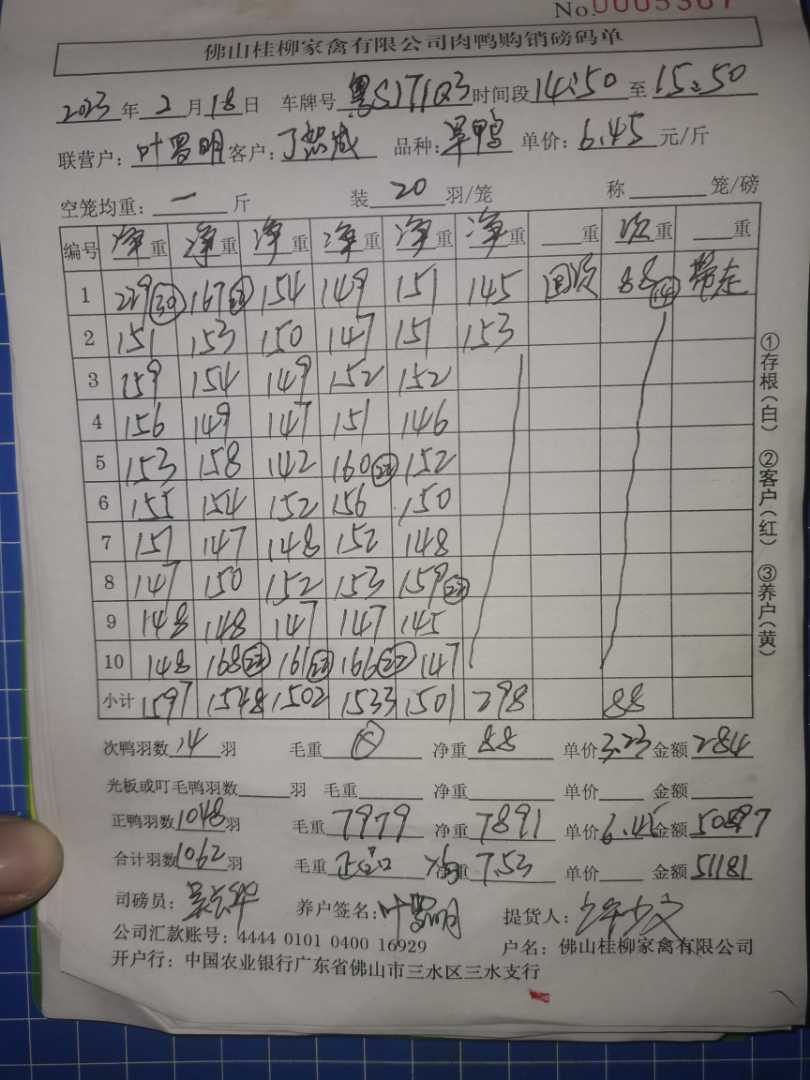 No.0005367
佛山桂柳家禽有限公司肉鸭购销磅码单
2023年2月18日 车牌号 粤S 时间段14:50至15:50
联营户:叶 明 客户: 品种: 鸭 单价:6.45元/斤
空笼均重:一斤 装20羽/笼 称 笼/磅
编号 净重 净重 净重 净重 净重 净重 重 次重 重
1 229(30) 167 154 149 151 145 回收 88(14) 带走
2 151 153 150 147 151 153
3 159 154 149 152 152
4 156 149 147 151 146
5 153 158 142 160 152
6 155 154 152 156 150
7 151 147 148 152 148
8 147 150 152 153 159
9 148 148 147 147 145
10 148 168 161 166(22) 147
小计 1597 1548 1502 1533 1501 298 88
①存根(白) ②客户(红) ③养户(黄)
次鸭羽数14羽 毛重 净重88 单价3.23金额284
光板或叮毛鸭羽数 羽 毛重 净重 单价 金额
正鸭羽数1048羽 毛重7979 净重7891 单价6.45金额50897
合计羽数1062羽 毛重 均重7.53 单价 金额51181
司磅员: 养户签名:叶 明 提货人:
公司汇款账号:4444 0101 0400 16929 户名:佛山桂柳家禽有限公司
开户行:中国农业银行广东省佛山市三水区三水支行